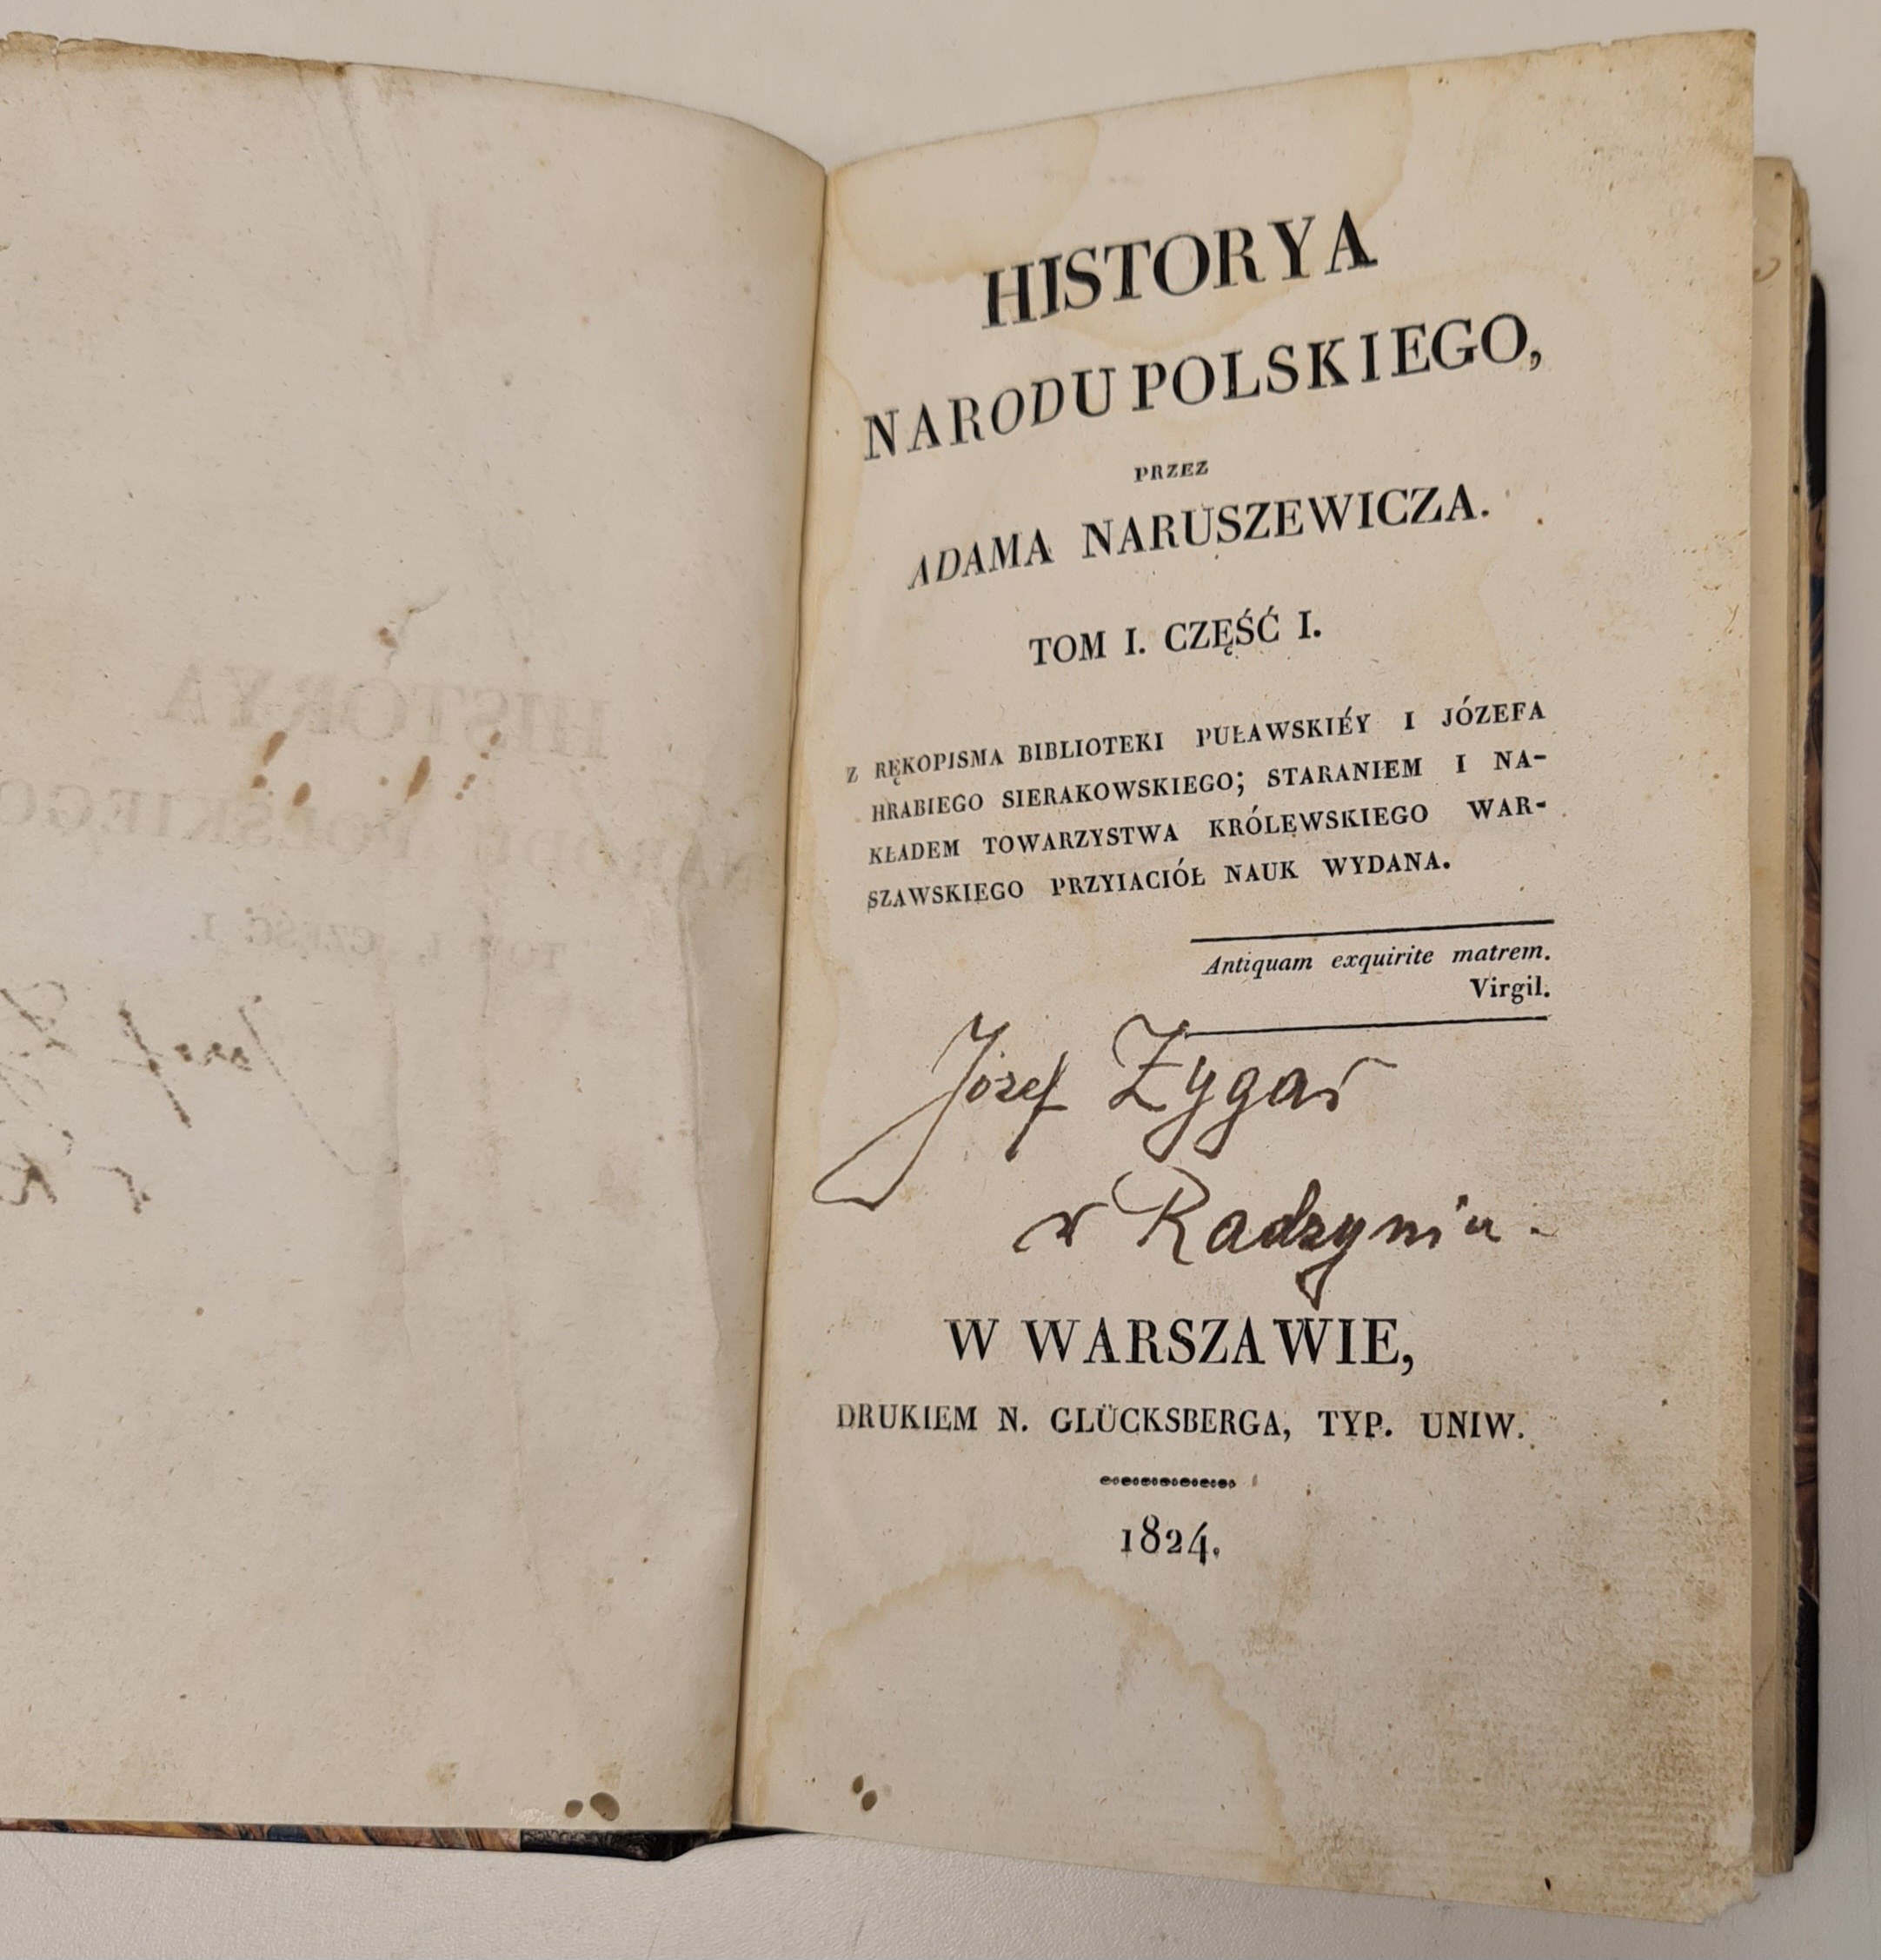 HISTORYA
NARODU POLSKIEGO,
TOM I, CZĘŚĆ I.
HISTORYA
NARODU POLSKIEGO,
PRZEZ
ADAMA NARUSZEWICZA.
TOM I. CZĘŚĆ I.
Z RĘKOPISMA BIBLIOTEKI PUŁAWSKIÉY I JÓZEFA
HRABIEGO SIERAKOWSKIEGO; STARANIEM I NA-
KŁADEM TOWARZYSTWA KRÓLEWSKIEGO WAR-
SZAWSKIEGO PRZYIACIÓŁ NAUK WYDANA.
Antiquam exquirite matrem.
Virgil.
Józef Zygar
w Radzyniu.
W WARSZAWIE,
DRUKIEM N. GLÜCKSBERGA, TYP. UNIW.
1824.